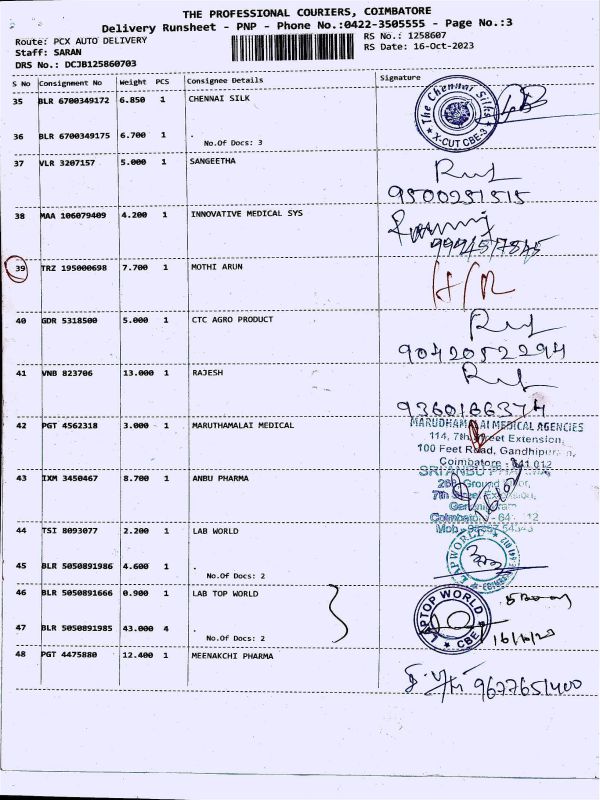 THE PROFESSIONAL COURIERS, COIMBATORE
Delivery Runsheet - PNP - Phone No.:0422-3505555 - Page No.:3
Route: PCX AUTO DELIVERY
RS No.: 1258607
Staff: SARAN
RS Date: 16-Oct-2023
DRS No.: DCJB125860703
S No Consignment No Weight PCS Consignee Details Signature
35 BLR 6700349172 6.850 1 CHENNAI SILK
The Chennai Silks
X-CUT CBE-3
36 BLR 6700349175 6.700 1 .
No.Of Docs: 3
37 VLR 3207157 5.000 1 SANGEETHA
9500251515
38 MAA 106079409 4.200 1 INNOVATIVE MEDICAL SYS
39 TRZ 195000698 7.700 1 MOTHI ARUN
40 GDR 5318500 5.000 1 CTC AGRO PRODUCT
9042052294
41 VNB 823706 13.000 1 RAJESH
9360166374
42 PGT 4562318 3.000 1 MARUTHAMALAI MEDICAL
MARUDHAMALAI MEDICAL AGENCIES
114, 7th Street Extension,
100 Feet Road, Gandhipuram,
Coimbatore - 641 012
43 IXM 3450467 8.700 1 ANBU PHARMA
SRI ANBU PHARMA
44 TSI 8093077 2.200 1 LAB WORLD
45 BLR 5050891986 4.600 1 .
No.Of Docs: 2
46 BLR 5050891666 0.900 1 LAB TOP WORLD
LAPTOP WORLD
CBE
16/10/23
47 BLR 5050891985 43.000 4 .
No.Of Docs: 2
48 PGT 4475880 12.400 1 MEENAKCHI PHARMA
9677651400